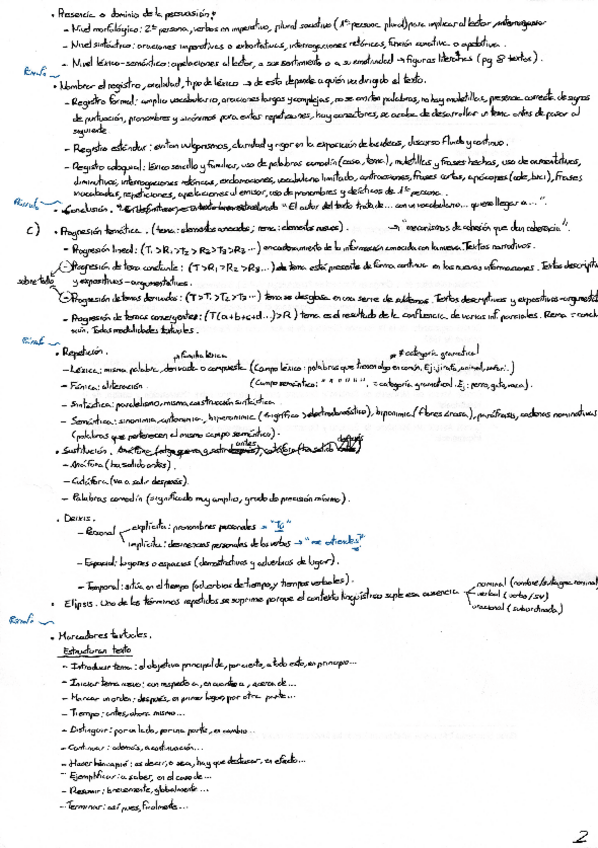 • Presencia o dominio de la persuasión:
– Nivel morfológico: 2ª persona, verbos en imperativo, plural sociativo (1ª persona plural) para implicar al lector,
– Nivel sintáctico: oraciones imperativas o exhortativas, interrogaciones retóricas, función conativa o apelativa.
– Nivel léxico-semántico: apelaciones al lector, a sus sentimientos o a su emotividad → figuras literarias (pg 8 textos).
Párrafo
• Nombrar el registro, oralidad, tipo de léxico → de esto depende a quién va dirigido el texto.
– Registro formal: amplio vocabulario, oraciones largas y complejas, no se omiten palabras, no hay muletillas, presencia correcta de signos
de puntuación, pronombres y sinónimos para evitar repeticiones, hay conectores, se acaba de desarrollar un tema antes de pasar al
siguiente
– Registro estándar: evitan vulgarismos, claridad y rigor en la exposición de las ideas, discurso fluido y continuo.
– Registro coloquial: léxico sencillo y familiar, uso de palabras comodín (cosa, tema), muletillas y frases hechas, uso de aumentativos,
diminutivos, interrogaciones retóricas, exclamaciones, vocabulario limitado, contracciones, frases cortas, apócopes (cole, bici), frases
inacabadas, repeticiones, apelaciones al emisor, uso de pronombres y deícticos de 1ª persona.
Párrafo
• Conclusión. "El autor del texto trata de... con un vocabulario... quiere llegar a..."
c) • Progresión temática. (tema: elementos conocidos; rema: elementos nuevos). → "mecanismos de cohesión que dan coherencia".
– Progresión lineal: (T₁>R₁>T₂>R₂>T₃>R₃...) encadenamiento de la información conocida con la nueva. Textos narrativos.
sobre todo
– Progresión de tema constante: (T>R₁>R₂>R₃...) el tema está presente de forma continua en las nuevas informaciones. Textos descriptiv
y expositivos-argumentativos.
– Progresión de temas derivados: (T>T₁>T₂>T₃...) tema se desglosa en una serie de subtemas. Textos descriptivos y expositivos-argumentat
– Progresión de temas convergentes: (T(a+b+c+d...)>R) tema es el resultado de la confluencia de varias inf. parciales. Rema = concl
sión. Todas modalidades textuales.
Párrafo
• Repetición. familia léxica ≠ categoría gramatical
– Léxica: misma palabra, derivada o compuesta (Campo léxico: palabras que tienen algo en común. Ej: jirafa, animal, safari.)
– Fónica: aliteración (Campo semántico: " " " " " , = categoría gramatical. Ej: perro, gato, vaca).
– Sintáctica: paralelismo, misma construcción sintáctica
– Semántica: sinonimia, antonimia, hiperonimia (frigorífico > electrodoméstico), hiponimia (flores > rosa), paráfrasis, cadenas nominativas
(palabras que pertenecen al mismo campo semántico).
• Sustitución.
– Anáfora (ha salido antes).
– Catáfora (va a salir después).
– Palabras comodín (significado muy amplio, grado de precisión mínimo).
• Deixis.
– Personal explícita: pronombres personales = "Tú"
implícita: desinencias personales de los verbos → "me atiendes"
– Espacial: lugares o espacios (demostrativos y adverbios de lugar).
– Temporal: sitúa en el tiempo (adverbios de tiempo, y tiempos verbales).
• Elipsis. Uno de los términos repetidos se suprime porque el contexto lingüístico suple esa ausencia nominal (nombre/sintagma nominal)
verbal (verbo/SV)
oracional (subordinada)
Párrafo
• Marcadores textuales.
Estructuran texto
– Introducir tema: el objetivo principal de, por cierto, a todo esto, en principio...
– Iniciar tema nuevo: con respecto a, en cuanto a, acerca de...
– Marcar un orden: después, en primer lugar, por otra parte...
– Tiempo: antes, ahora mismo...
– Distinguir: por un lado, por una parte, en cambio...
– Continuar: además, a continuación...
– Hacer hincapié: es decir, o sea, hay que destacar, en efecto...
– Ejemplificar: a saber, en el caso de...
– Resumir: brevemente, globalmente...
– Terminar: así pues, finalmente...
2